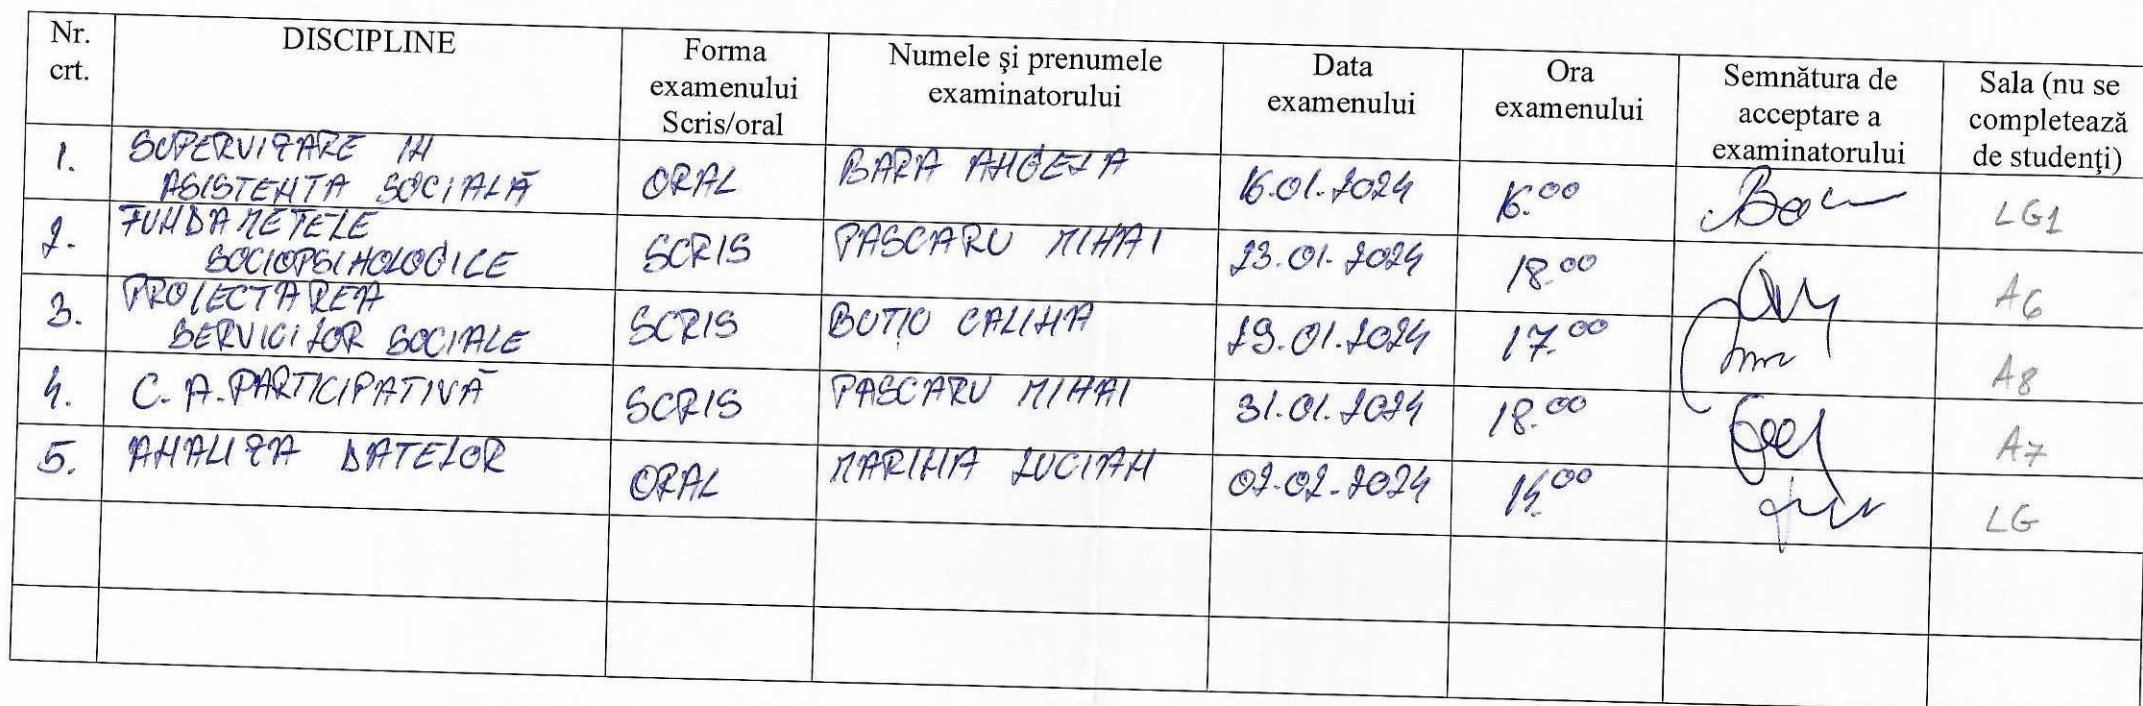 Nr. crt. DISCIPLINE Forma examenului Scris/oral Numele şi prenumele examinatorului Data examenului Ora examenului Semnătura de acceptare a examinatorului Sala (nu se completează de studenţi)
1. SUPERVIZARE IN ASISTENTA SOCIALĂ ORAL BARA ANGELA 16.01.2024 16.00 LG1
2. FUNDAMETELE SOCIOPSIHOLOGICE SCRIS PASCARU MIHAI 23.01.2024 18.00 A6
3. PROIECTAREA SERVICIILOR SOCIALE SCRIS BUTIU CALINA 29.01.2024 17.00 A8
4. C.A. PARTICIPATIVĂ SCRIS PASCARU MIHAI 31.01.2024 18.00 A7
5. ANALIZA DATELOR ORAL MARINA LUCIAN 02.02.2024 14.00 LG